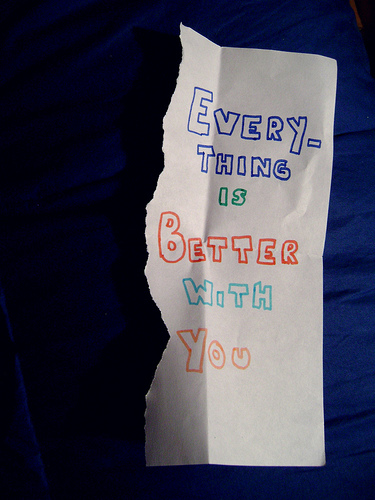 EVERY-
THING
IS
BETTER
WITH
YOU